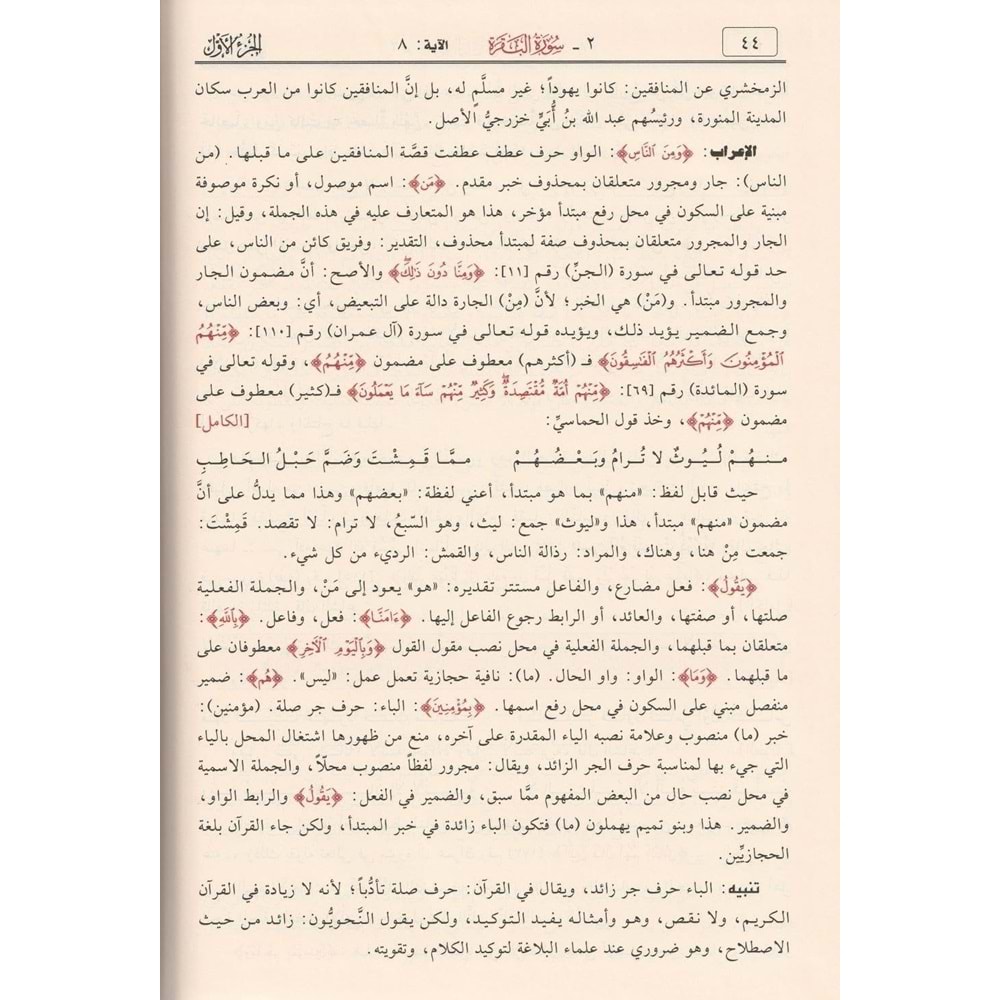 ٤٤ ٢ - سُورَةُ البَقَرَة الآية: ٨ الجزءُ الأوَّل
الزمخشري عن المنافقين: كانوا يهوداً؛ غير مسلَّم له، بل إنَّ المنافقين كانوا من العرب سكان
المدينة المنورة، ورئيسُهم عبد الله بنُ أُبَيٍّ خزرجيُّ الأصل.
الإعراب: ﴿وَمِنَ النَّاسِ﴾: الواو حرف عطف عطفت قصَّة المنافقين على ما قبلها. (من
الناس): جار ومجرور متعلقان بمحذوف خبر مقدم. ﴿مَن﴾: اسم موصول، أو نكرة موصوفة
مبنية على السكون في محل رفع مبتدأ مؤخر، هذا هو المتعارف عليه في هذه الجملة، وقيل: إن
الجار والمجرور متعلقان بمحذوف صفة لمبتدأ محذوف، التقدير: وفريق كائن من الناس، على
حد قوله تعالى في سورة (الجنِّ) رقم [١١]: ﴿وَمِنَّا دُونَ ذَٰلِكَۖ﴾ والأصح: أنَّ مضمون الجار
والمجرور مبتدأ. و(مَنْ) هي الخبر؛ لأنَّ (مِنْ) الجارة دالة على التبعيض، أي: وبعض الناس،
وجمع الضمير يؤيد ذلك، ويؤيده قوله تعالى في سورة (آل عمران) رقم [١١٠]: ﴿مِّنْهُمُ
الْمُؤْمِنُونَ وَأَكْثَرُهُمُ الْفَاسِقُونَ﴾ فـ (أكثرهم) معطوف على مضمون ﴿مِّنْهُمُ﴾، وقوله تعالى في
سورة (المائدة) رقم [٦٩]: ﴿مِّنْهُمْ أُمَّةٌ مُّقْتَصِدَةٌۖ وَكَثِيرٌ مِّنْهُمْ سَاءَ مَا يَعْمَلُونَ﴾ فـ(كثير) معطوف على
مضمون ﴿مِّنْهُمْ﴾، وخذ قول الحماسيِّ: [الكامل]
مـنـهُـمْ لُـيُـوثٌ لا تُـرامُ وبَـعْـضُـهُـمْ مـمَّـا قَـمِـشْـتَ وَضَـمَّ حَـبْـلُ الـحَـاطِـبِ
حيث قابل لفظ: «منهم» بما هو مبتدأ، أعني لفظة: «بعضهم» وهذا مما يدلُّ على أنَّ
مضمون «منهم» مبتدأ، هذا و«ليوث» جمع: ليث، وهو السّبعُ، لا ترام: لا تقصد. قَمِشْتَ:
جمعت مِنْ هنا، وهناك، والمراد: رذالة الناس، والقمش: الرديء من كل شيء.
﴿يَقُولُ﴾: فعل مضارع، والفاعل مستتر تقديره: «هو» يعود إلى مَنْ، والجملة الفعلية
صلتها، أو صفتها، والعائد، أو الرابط رجوع الفاعل إليها. ﴿ءَامَنَّا﴾: فعل، وفاعل. ﴿بِاللَّهِ﴾:
متعلقان بما قبلهما، والجملة الفعلية في محل نصب مقول القول ﴿وَبِالْيَوْمِ الْآخِرِ﴾ معطوفان على
ما قبلهما. ﴿وَمَا﴾: الواو: واو الحال. (ما): نافية حجازية تعمل عمل: «ليس». ﴿هُم﴾: ضمير
منفصل مبني على السكون في محل رفع اسمها. ﴿بِمُؤْمِنِينَ﴾: الباء: حرف جر صلة. (مؤمنين):
خبر (ما) منصوب وعلامة نصبه الياء المقدرة على آخره، منع من ظهورها اشتغال المحل بالياء
التي جيء بها لمناسبة حرف الجر الزائد، ويقال: مجرور لفظاً منصوب محلّاً، والجملة الاسمية
في محل نصب حال من البعض المفهوم ممَّا سبق، والضمير في الفعل: ﴿يَقُولُ﴾ والرابط الواو،
والضمير. هذا وبنو تميم يهملون (ما) فتكون الباء زائدة في خبر المبتدأ، ولكن جاء القرآن بلغة
الحجازيِّين.
تنبيه: الباء حرف جر زائد، ويقال في القرآن: حرف صلة تأدُّباً؛ لأنه لا زيادة في القرآن
الكريم، ولا نقص، وهو وأمثاله يفيد التوكيد، ولكن يقول النَّحويُّون: زائد من حيث
الاصطلاح، وهو ضروري عند علماء البلاغة لتوكيد الكلام، وتقويته.